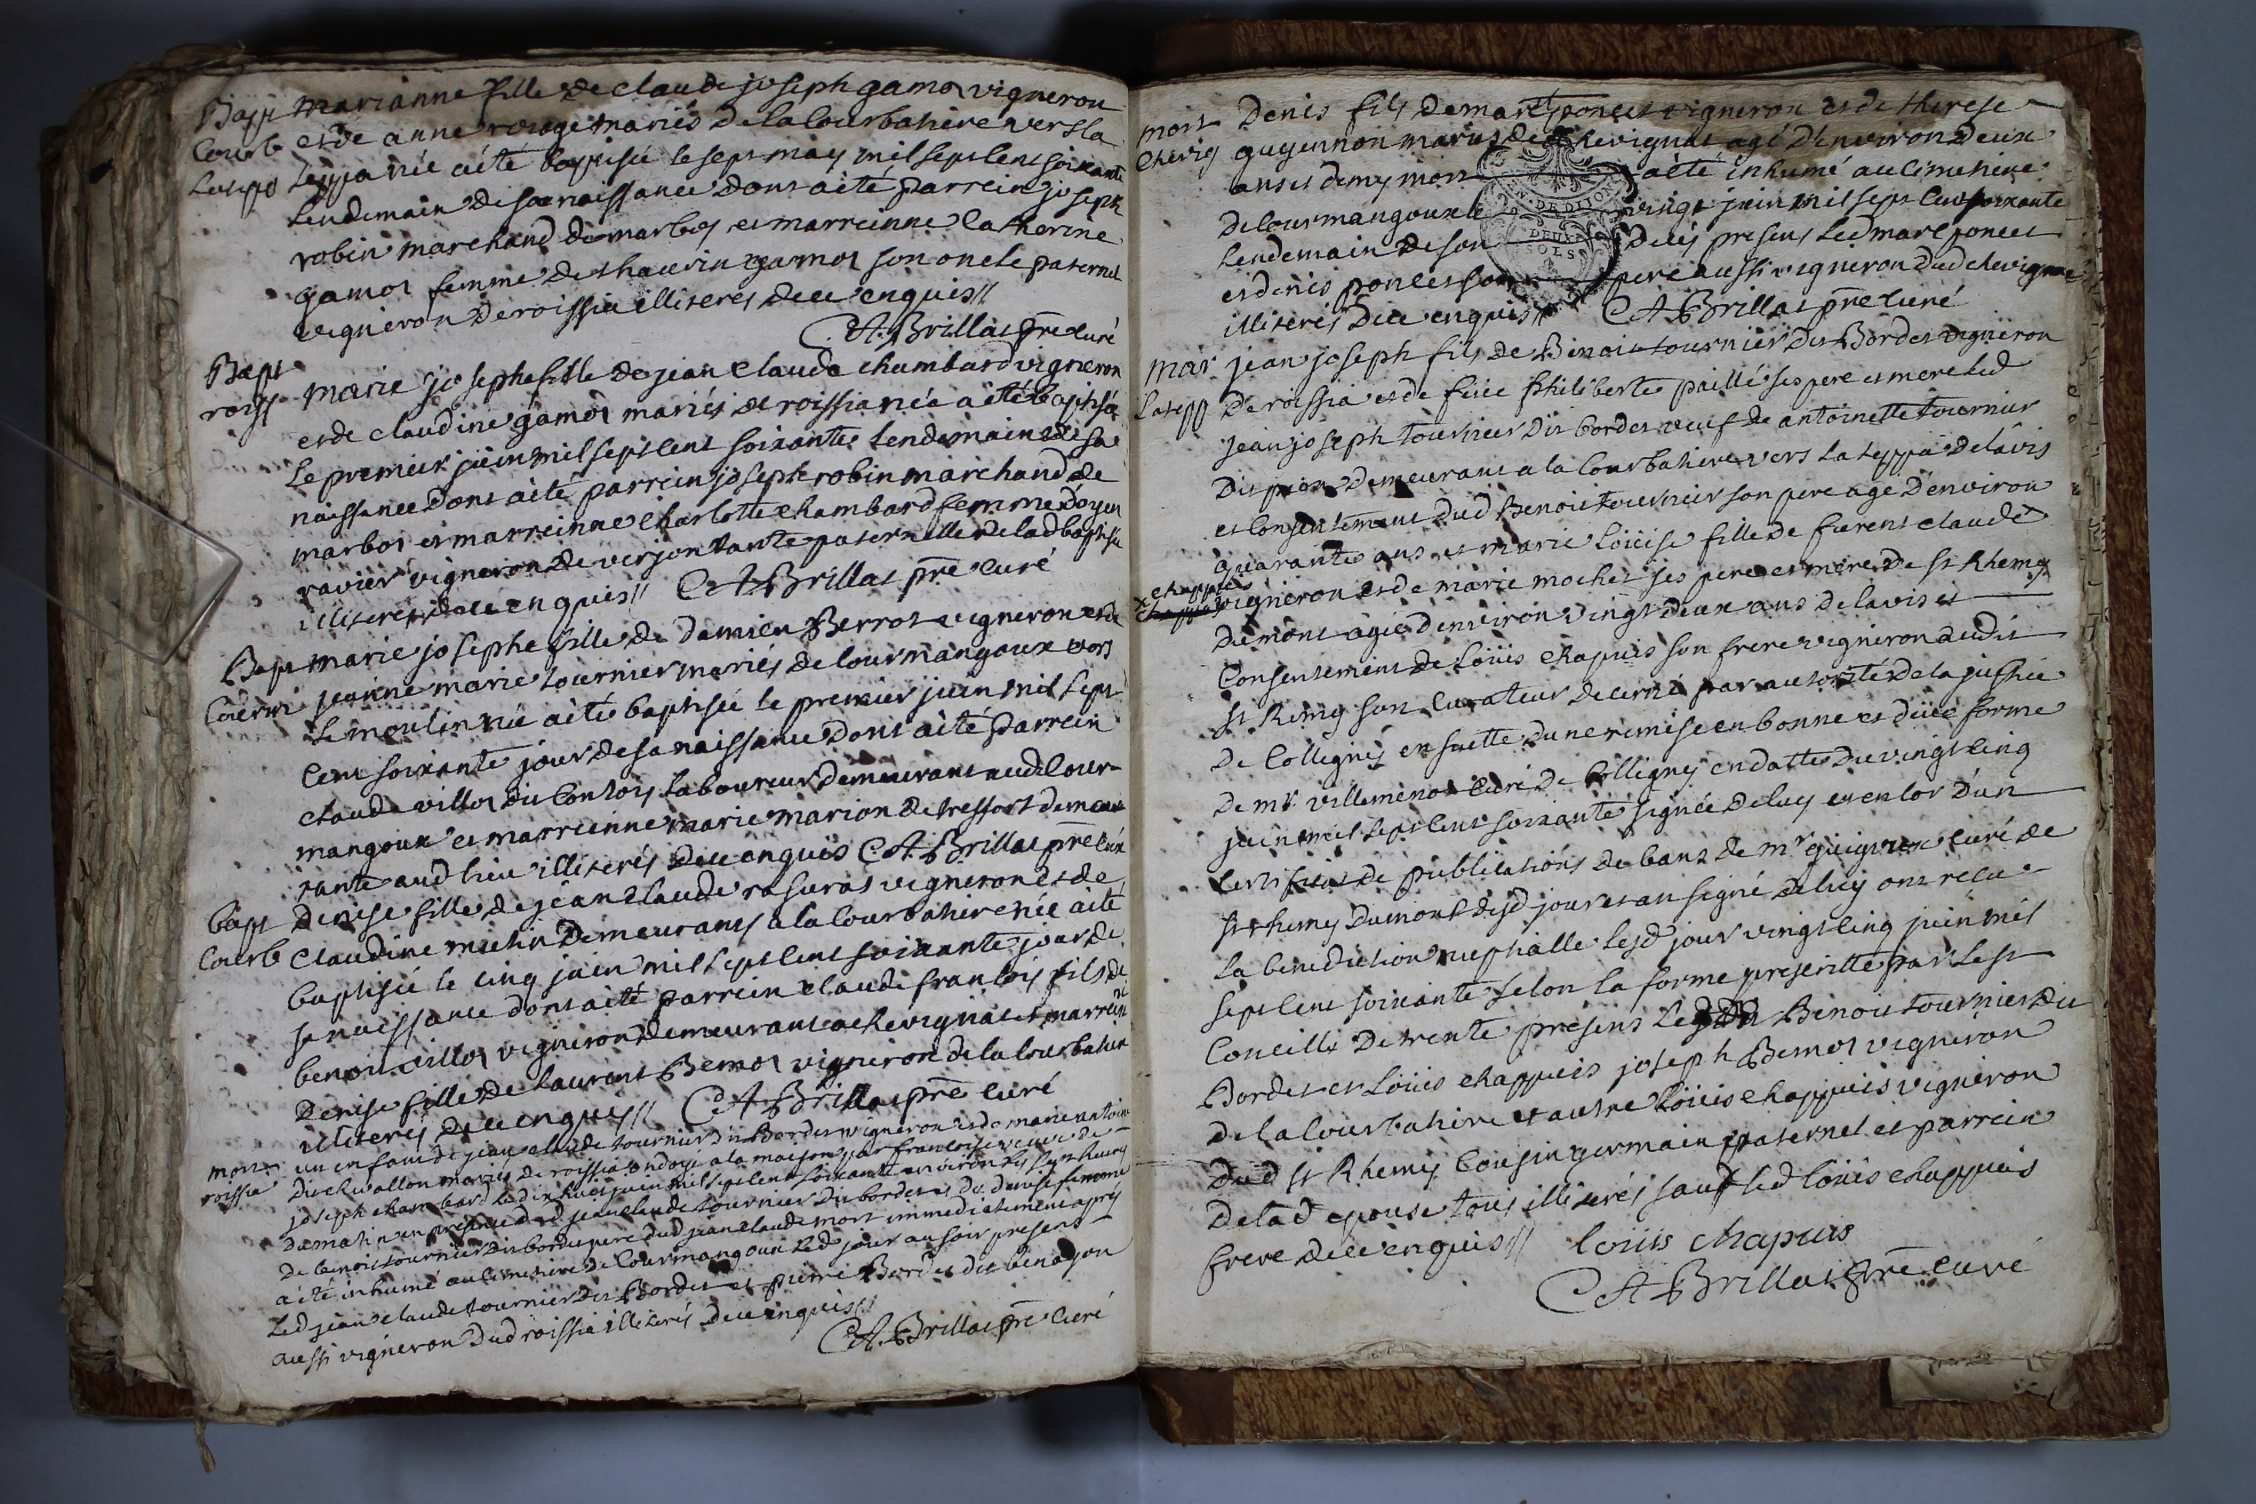 Bapt marianne fille de claude joseph gamos vigneron
Courb et de anne rouge mariés de la Courbatiere vers la
Lateppe Leppa née a été baptisée le sept may mil sept cent soixante
Lendemain de sa naissance dont a été parrein joseph
robin marchand de marbos et marreinne Catherine
gamos femme de thauvin gamos son oncle paternel
vigneron de roissia illiterés de ce enquis //
C A Brillat pre curé
Bapt
roiss marie josephe fille de jean claude chambard vigneron
et de claudine gamos mariés de roissia née a été baptisée
le premier juin mil sept cent soixante lendemain de sa
naissance dont a été parrein joseph robin marchand de
marbos et marreinne charlotte chambard femme doyen
ravier vigneron de verjon tante paternelle de lad baptisée
illiterés de ce enquis // C A Brillat pre curé
Bapt marie josephe fille de Damien Berrot vigneron et de
Courm jeanne marie tournier mariés de Courmangoux vers
le moulin née a été baptisée le premier juin mil sept
Cent soixante jour de sa naissance dont a été parrein
claude villos dit Contois laboureur demeurant aud Cour-
mangoux et marreinne marie marion de tressort demeu
rante aud lieu illiterés de ce enquis C A Brillat pre curé
bapt Denise fille de jean claude rasuras vigneron et de
Courb Claudine michin demeurants a la Courbatiere née a été
baptisée le cinq juin mil sept cent soixante jour de
sa naissance dont a été parrein claude francois fils de
benoit villos vigneron demeurant a chevignat et marrein
Denise fille de Laurent Bemos vigneron de la Courbatiere
illiterés de ce enquis // C A Brillat pre curé
mort un enfant de jean claude tournier dit Bordes vigneron et de marie antoine
roissia dit chevallon mariés de roissia ondoyé a la maison par francoise veuve de
joseph chambard le dix huit juin mil sept cent soixante environ les sept heures
du matin en presence dud jean claude tournier dit bordes et de denise femme
de benoit tournier dit bordes pere dud jean claude mort immediatement aprés
a été inhumé au cimetiere de Courmangoux led jour au soir presens
Led jean claude tournier dit Bordes et pierre Bordes dit benoyon
aussi vigneron dud roissia illiterés de ce enquis //
C A Brillat pre curé
mort Denis fils de marc poncet vigneron et de therese
Chevig guyennon mariés de chevignat agé d'environ deux
ans et demy mort a été inhumé au cimetiere
de Courmangoux le vingt juin mil sept cent soixante
Lendemain de son decés presens led marc poncet
et denis poncet son pere aussi vigneron dud chevignat
illiterés de ce enquis // C A Brillat pre curé
mar jean joseph fils de Benoit tournier dit Bordes vigneron
Latepp de roissia et de feue philiberte paillé ses pere et mere led
jean joseph tournier dit bordes veuf de antoinette tournier
dit pion demeurant a la Courbatiere vers la teppa de l'avis
et Consentement dud Benoit tournier son pere agé d'environ
quarante ans et marie Loüise fille de furent claude
x chappuis
chappuis vigneron et de marie mochet ses pere et mere de st Rhemy
du mont agée d'environ vingt deux ans de l'avis et
Consentement de Loüis chapuis son frere vigneron audit
st Remy son Curateur decerné par autorité de la justice
de Colligny en suitte d'une remise en bonne et düee forme
de mr. villemenot curé de Colligny en datte du vingt cinq
juin mil sept cent soixante signée de luy et en lor d'un
certificat de publications de bans de mr guigue curé de
st rhemy dumont desd jour et an signé de luy ont recu
la benediction nuptialle lesd jour vingt cinq juin mil
sept cent soixante selon la forme prescritte par le st
Concille de trente presens led Benoit tournier dit
Bordes et Loüis chappuis joseph Bemos vigneron
de la Courbatiere et autre Loüis chappuis vigneron
dud st Rhemy Cousin germain paternel et parrein
de lad epouse tous illiterés sauf led loüis chappuis
frere de ce enquis //
loüis chapuis
C A Brillat pre curé
GÉN. DE DIJON
DEUX
SOLS